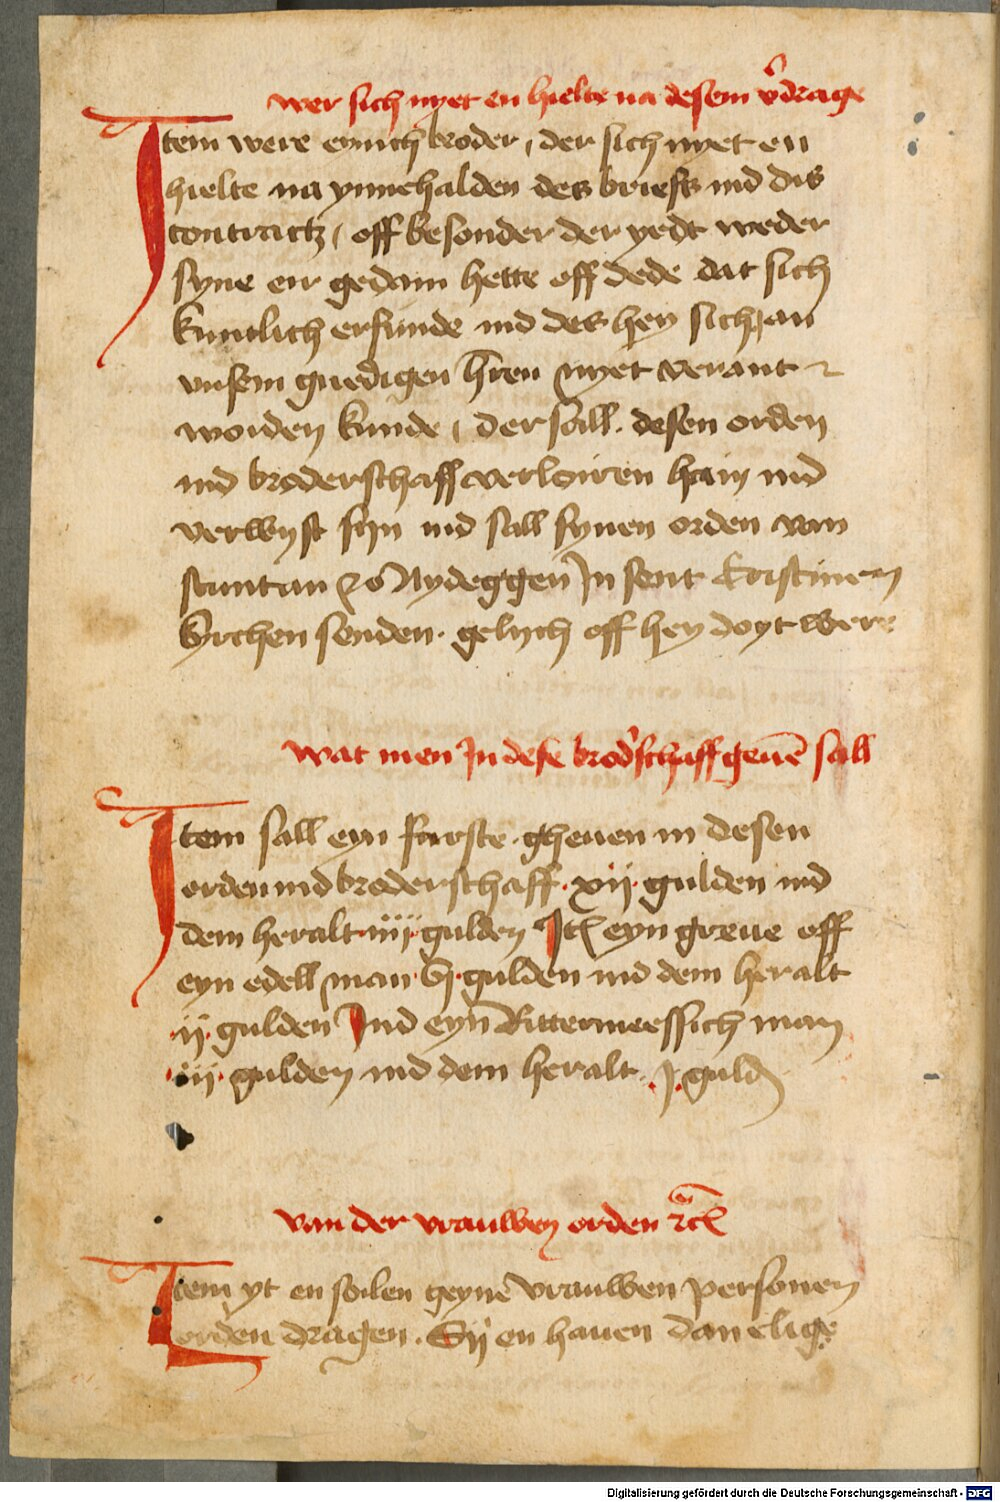 wer sich nyet en hielte na desem v̉drage
Item were eynich broder, der sich nyet en
hielte na ynnehalden des briefs ind dis
contractz, off besonder der yedt weder
syne eir gedain hette off dede dat sich
kuntlich erfunde ind des hey sich an
vnsem gnedigen h̄ren nyet verant
worden kunde, der sall. desen orden
ind broderschaff verloiren hain ind
verwyst syn ind sall synen orden van
stuntan zo Nydeggen In sent Cristinen
kyrchen senden. gelych off hey doyt were
wat men In dese brod̉schaff geuē sall
Item sall eyn furste gheuen in desen
orden ind broderschaff. xij. gulden ind
dem heralt. iiij. gulden Itē eyn greue off
eyn edell man. vj. gulden ind dem heralt
.ij. gulden Ind eyn Rittermeessich man
.iij. gulden ind dem heralt. j. guld
van der vrauwen orden ꝛc̄
Item yt en soilen geynē vrauwen personen
orden dragen. Sij en hauen dan elige
Digitalisierung gefördert durch die Deutsche Forschungsgemeinschaft - DFG